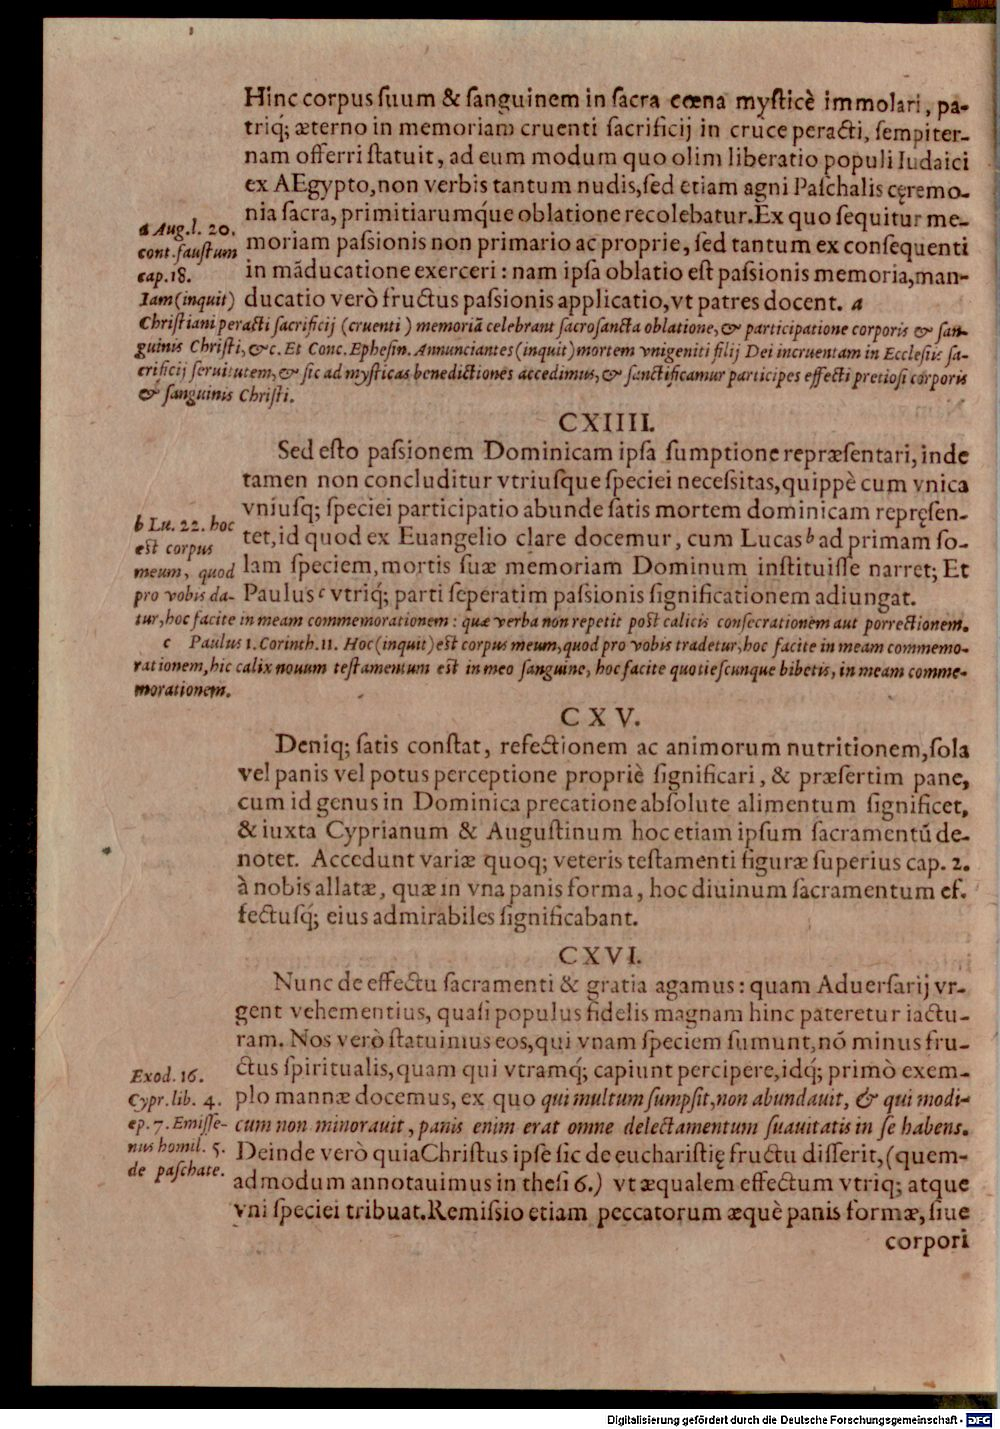 Hinc corpus ſuum & ſanguinem in ſacra cœna myſticè immolari, pa-
triq́; æterno in memoriam cruenti ſacrificij in cruce peracti, ſempiter-
nam offerri ſtatuit, ad eum modum quo olim liberatio populi Iudaici
ex AEgypto, non verbis tantum nudis, ſed etiam agni Paſchalis cęremo-
nia ſacra, primitiarumq́ue oblatione recolebatur. Ex quo ſequitur me-
moriam paſsionis non primario ac proprie, ſed tantum ex conſequenti
in māducatione exerceri: nam ipſa oblatio eſt paſsionis memoria, man-
ducatio verò fructus paſsionis applicatio, vt patres docent. a
a Aug. l. 20.
cont. fauſtum
cap. 18.
Iam (inquit)
Chriſtiani peracti ſacrificij (cruenti) memoriā celebrant ſacroſancta oblatione, & participatione corporis & ſan-
guinis Chriſti, &c. Et Conc. Epheſin. Annunciantes (inquit) mortem vnigeniti filij Dei incruentam in Eccleſiis ſa-
crificij ſeruitutem, & ſic ad myſticas benedictiones accedimus, & ſanctificamur participes effecti pretioſi corporis
& ſanguinis Chriſti.
CXIIII.
Sed eſto paſsionem Dominicam ipſa ſumptione repræſentari, inde
tamen non concluditur vtriuſque ſpeciei neceſsitas, quippè cum vnica
vniuſq; ſpeciei participatio abunde ſatis mortem dominicam repręſen-
tet, id quod ex Euangelio clare docemur, cum Lucas b ad primam ſo-
lam ſpeciem, mortis ſuæ memoriam Dominum inſtituiſſe narret; Et
Paulus c vtriq́; parti ſeperatim paſsionis ſignificationem adiungat.
b Lu. 22. hoc
eſt corpus
meum, quod
pro vobis da-
tur, hoc facite in meam commemorationem: quæ verba non repetit poſt calicis conſecrationem aut porrectionem.
c Paulus 1. Corinth. 11. Hoc (inquit) eſt corpus meum, quod pro vobis tradetur, hoc facite in meam commemo-
rationem, hic calix nouum teſtamentum eſt in meo ſanguine, hoc facite quotieſcunque bibetis, in meam comme-
morationem.
CXV.
Deniq; ſatis conſtat, refectionem ac animorum nutritionem, ſola
vel panis vel potus perceptione propriè ſignificari, & præſertim pane,
cum id genus in Dominica precatione abſolute alimentum ſignificet,
& iuxta Cyprianum & Auguſtinum hoc etiam ipſum ſacramentū de-
notet. Accedunt variæ quoq; veteris teſtamenti figuræ ſuperius cap. 2.
à nobis allatæ, quæ in vna panis forma, hoc diuinum ſacramentum ef-
fectuſq́; eius admirabiles ſignificabant.
CXVI.
Nunc de effectu ſacramenti & gratia agamus: quam Aduerſarij vr-
gent vehementius, quaſi populus fidelis magnam hinc pateretur iactu-
ram. Nos verò ſtatuimus eos, qui vnam ſpeciem ſumunt, nō minus fru-
ctus ſpiritualis, quam qui vtramq́; capiunt percipere, idq́; primò exem-
plo mannæ docemus, ex quo qui multum ſumpſit, non abundauit, & qui modi-
cum non minorauit, panis enim erat omne delectamentum ſuauitatis in ſe habens.
Deinde verò quia Chriſtus ipſe ſic de euchariſtię fructu diſſerit, (quem-
admodum annotauimus in theſi 6.) vt æqualem effectum vtriq; atque
vni ſpeciei tribuat. Remiſsio etiam peccatorum æquè panis formæ, ſiue
Exod. 16.
Cypr. lib. 4.
ep. 7. Emiſſe-
nus homil. 5.
de paſchate.
corpori
Digitalisierung gefördert durch die Deutsche Forschungsgemeinschaft - DFG